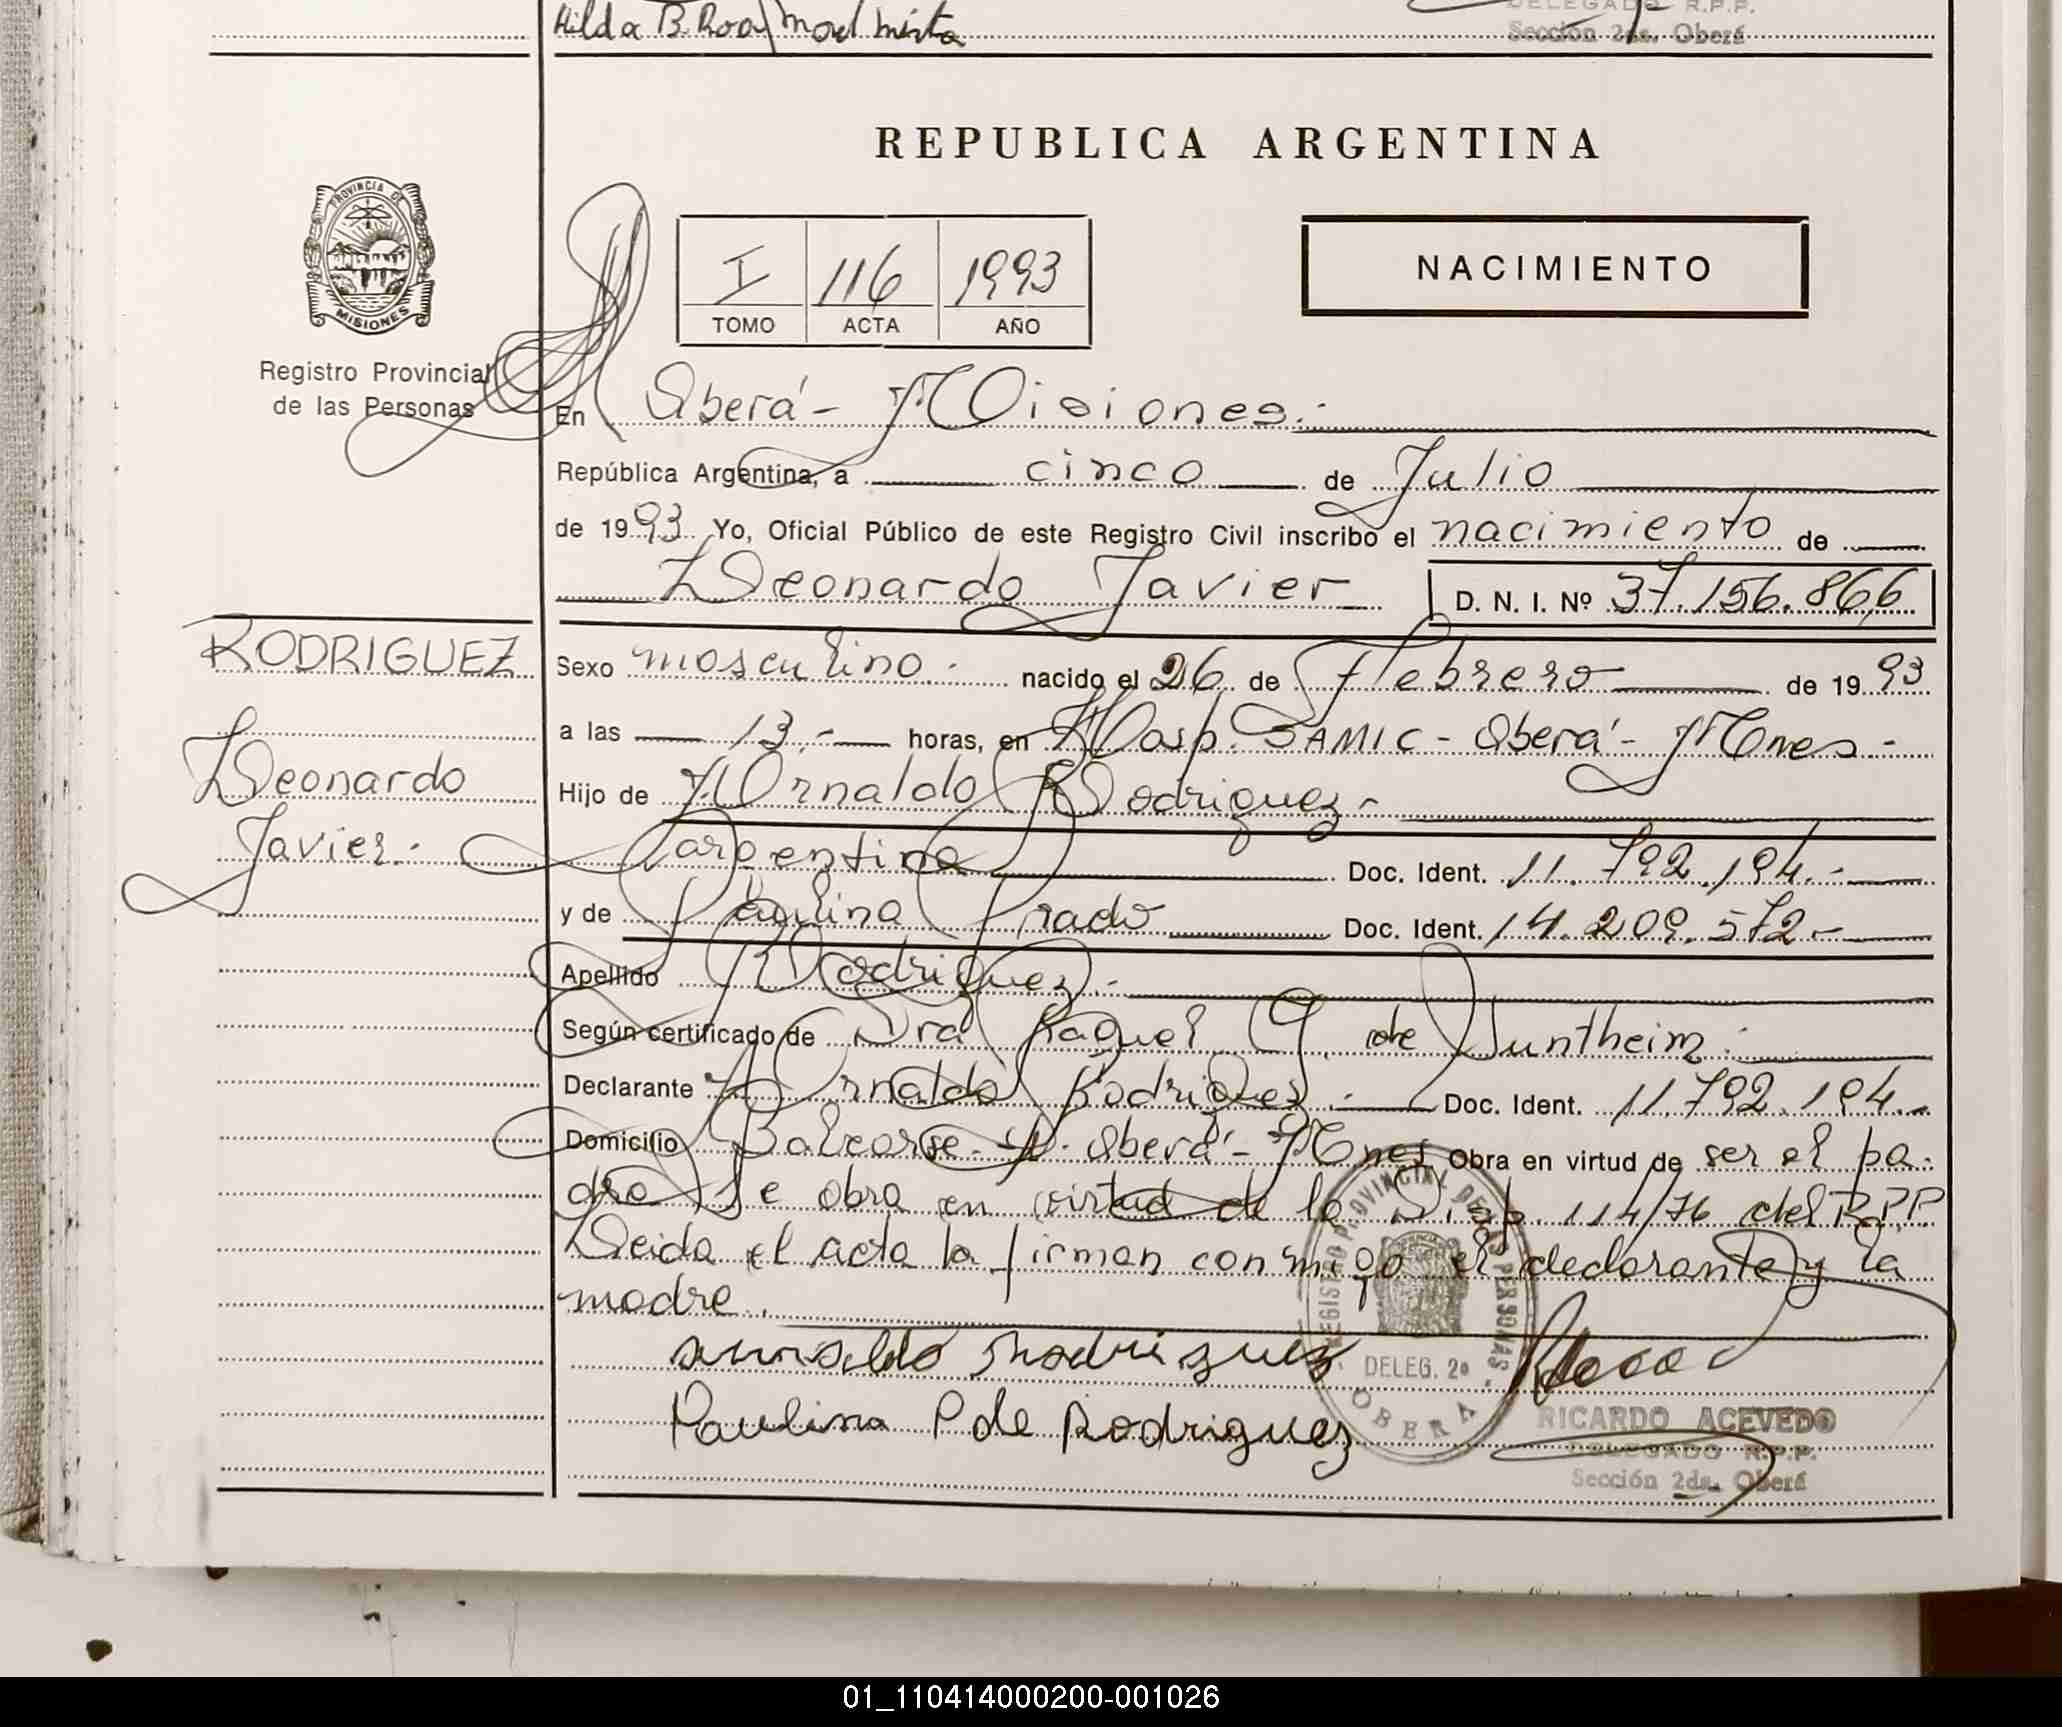 Hilda B. Roa
DELEGADO R.P.P.
Sección 2da. Oberá
REPUBLICA ARGENTINA
PROVINCIA DE MISIONES
Registro Provincial
de las Personas
I 116 1993
TOMO ACTA AÑO
NACIMIENTO
En Oberá - Misiones.-
República Argentina, a cinco de Julio
de 1993 Yo, Oficial Público de este Registro Civil inscribo el nacimiento de
Leonardo Javier D. N. I. Nº 37.156.866
RODRIGUEZ
Leonardo
Javier.-
Sexo masculino.- nacido el 26 de Febrero de 1993
a las 13.- horas, en Hosp. SAMIC - Oberá - Mnes -
Hijo de Arnaldo Rodriguez -
argentino Doc. Ident. 11.792.194.-
y de Paulina Prado Doc. Ident. 14.209.572.-
Apellido Rodriguez.-
Según certificado de Dra Raquel G. de Suntheim.-
Declarante Arnaldo Rodriguez.- Doc. Ident. 11.792.194.-
Domicilio Balcarse - Oberá - Mnes Obra en virtud de ser el pa-
dre Se obra en virtud de la Disp. 114/76 del R.P.P
Leida el acta la firman conmigo el declarante y la
madre.
Arnaldo Rodriguez
Paulina P de Rodriguez
REGISTRO PROVINCIAL DE LAS PERSONAS
DELEG. 2ª
OBERA
RICARDO ACEVEDO
DELEGADO R.P.P.
Sección 2da. Oberá
01_110414000200-001026